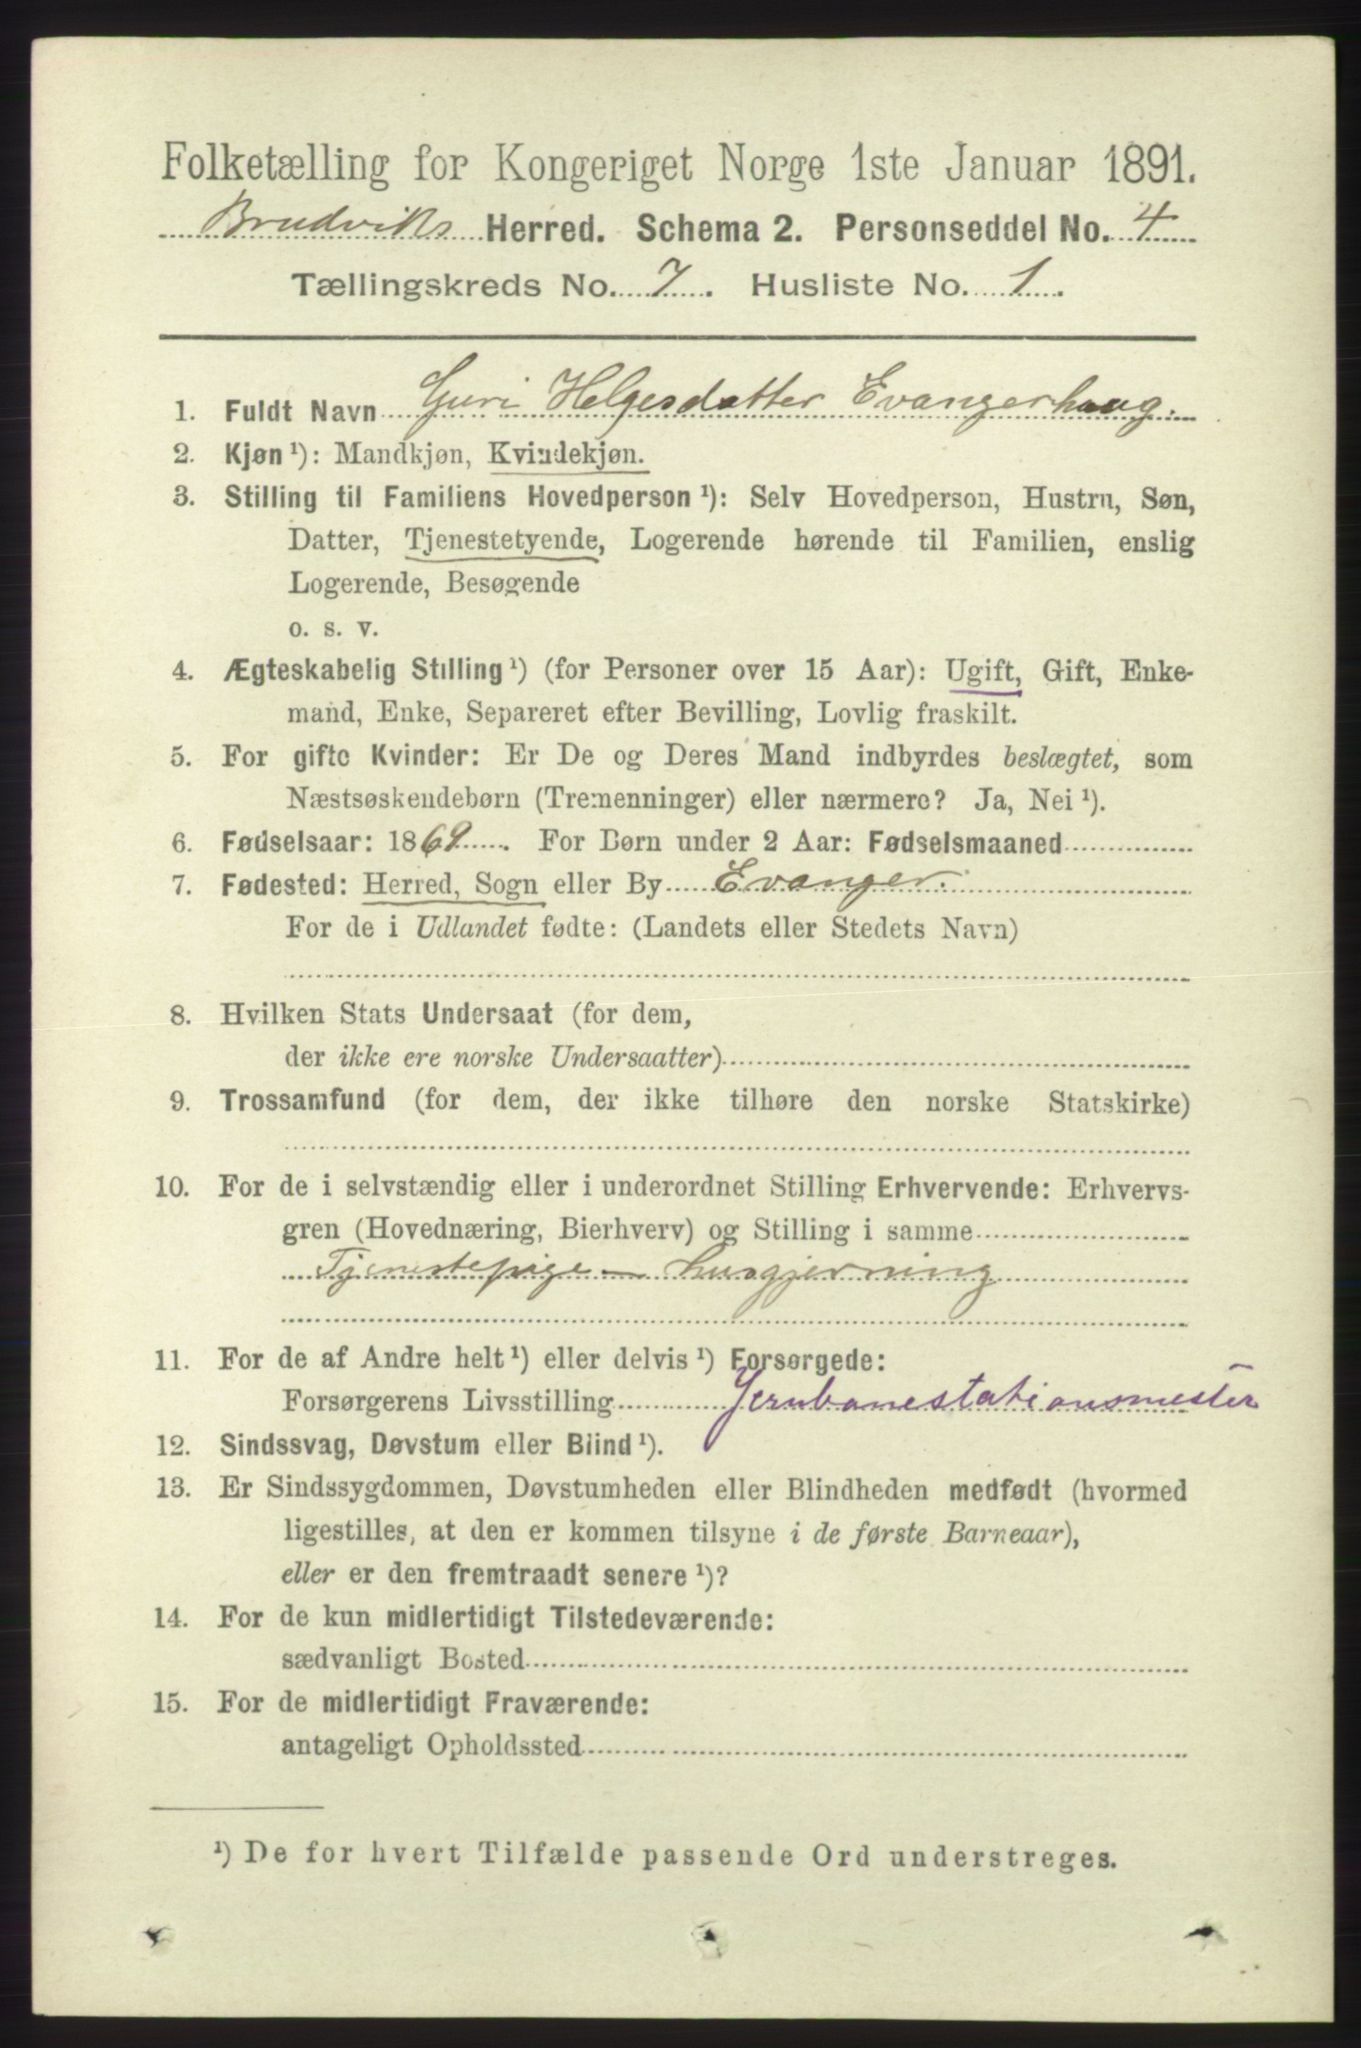 Folketælling for Kongeriget Norge 1ste Januar 1891.
Brudviks Herred. Schema 2. Personseddel No. 4
Tællingskreds No. 7. Husliste No. 1.
1. Fuldt Navn Guri Helgesdatter Evangerhaug.
2. Kjøn ¹): Mandkjøn, Kvindekjøn.
3. Stilling til Familiens Hovedperson ¹): Selv Hovedperson, Hustru, Søn,
Datter, Tjenestetyende, Logerende hørende til Familien, enslig
Logerende, Besøgende
o. s. v.
4. Ægteskabelig Stilling ¹) (for Personer over 15 Aar): Ugift, Gift, Enke-
mand, Enke, Separeret efter Bevilling, Lovlig fraskilt.
5. For gifte Kvinder: Er De og Deres Mand indbyrdes beslægtet, som
Næstsøskendebørn (Tremenninger) eller nærmere? Ja, Nei ¹).
6. Fødselsaar: 1869. For Børn under 2 Aar: Fødselsmaaned
7. Fødested: Herred, Sogn eller By Evanger.
For de i Udlandet fødte: (Landets eller Stedets Navn)
8. Hvilken Stats Undersaat (for dem,
der ikke ere norske Undersaatter)
9. Trossamfund (for dem, der ikke tilhøre den norske Statskirke)
10. For de i selvstændig eller i underordnet Stilling Erhvervende: Erhvervs-
gren (Hovednæring, Bierhverv) og Stilling i samme
Tjenestepige – husgjerning
11. For de af Andre helt ¹) eller delvis ¹) Forsørgede:
Forsørgerens Livsstilling Jernbanestationsmester
12. Sindssvag, Døvstum eller Blind ¹).
13. Er Sindssygdommen, Døvstumheden eller Blindheden medfødt (hvormed
ligestilles, at den er kommen tilsyne i de første Barneaar),
eller er den fremtraadt senere ¹)?
14. For de kun midlertidigt Tilstedeværende:
sædvanligt Bosted
15. For de midlertidigt Fraværende:
antageligt Opholdssted
¹) De for hvert Tilfælde passende Ord understreges.